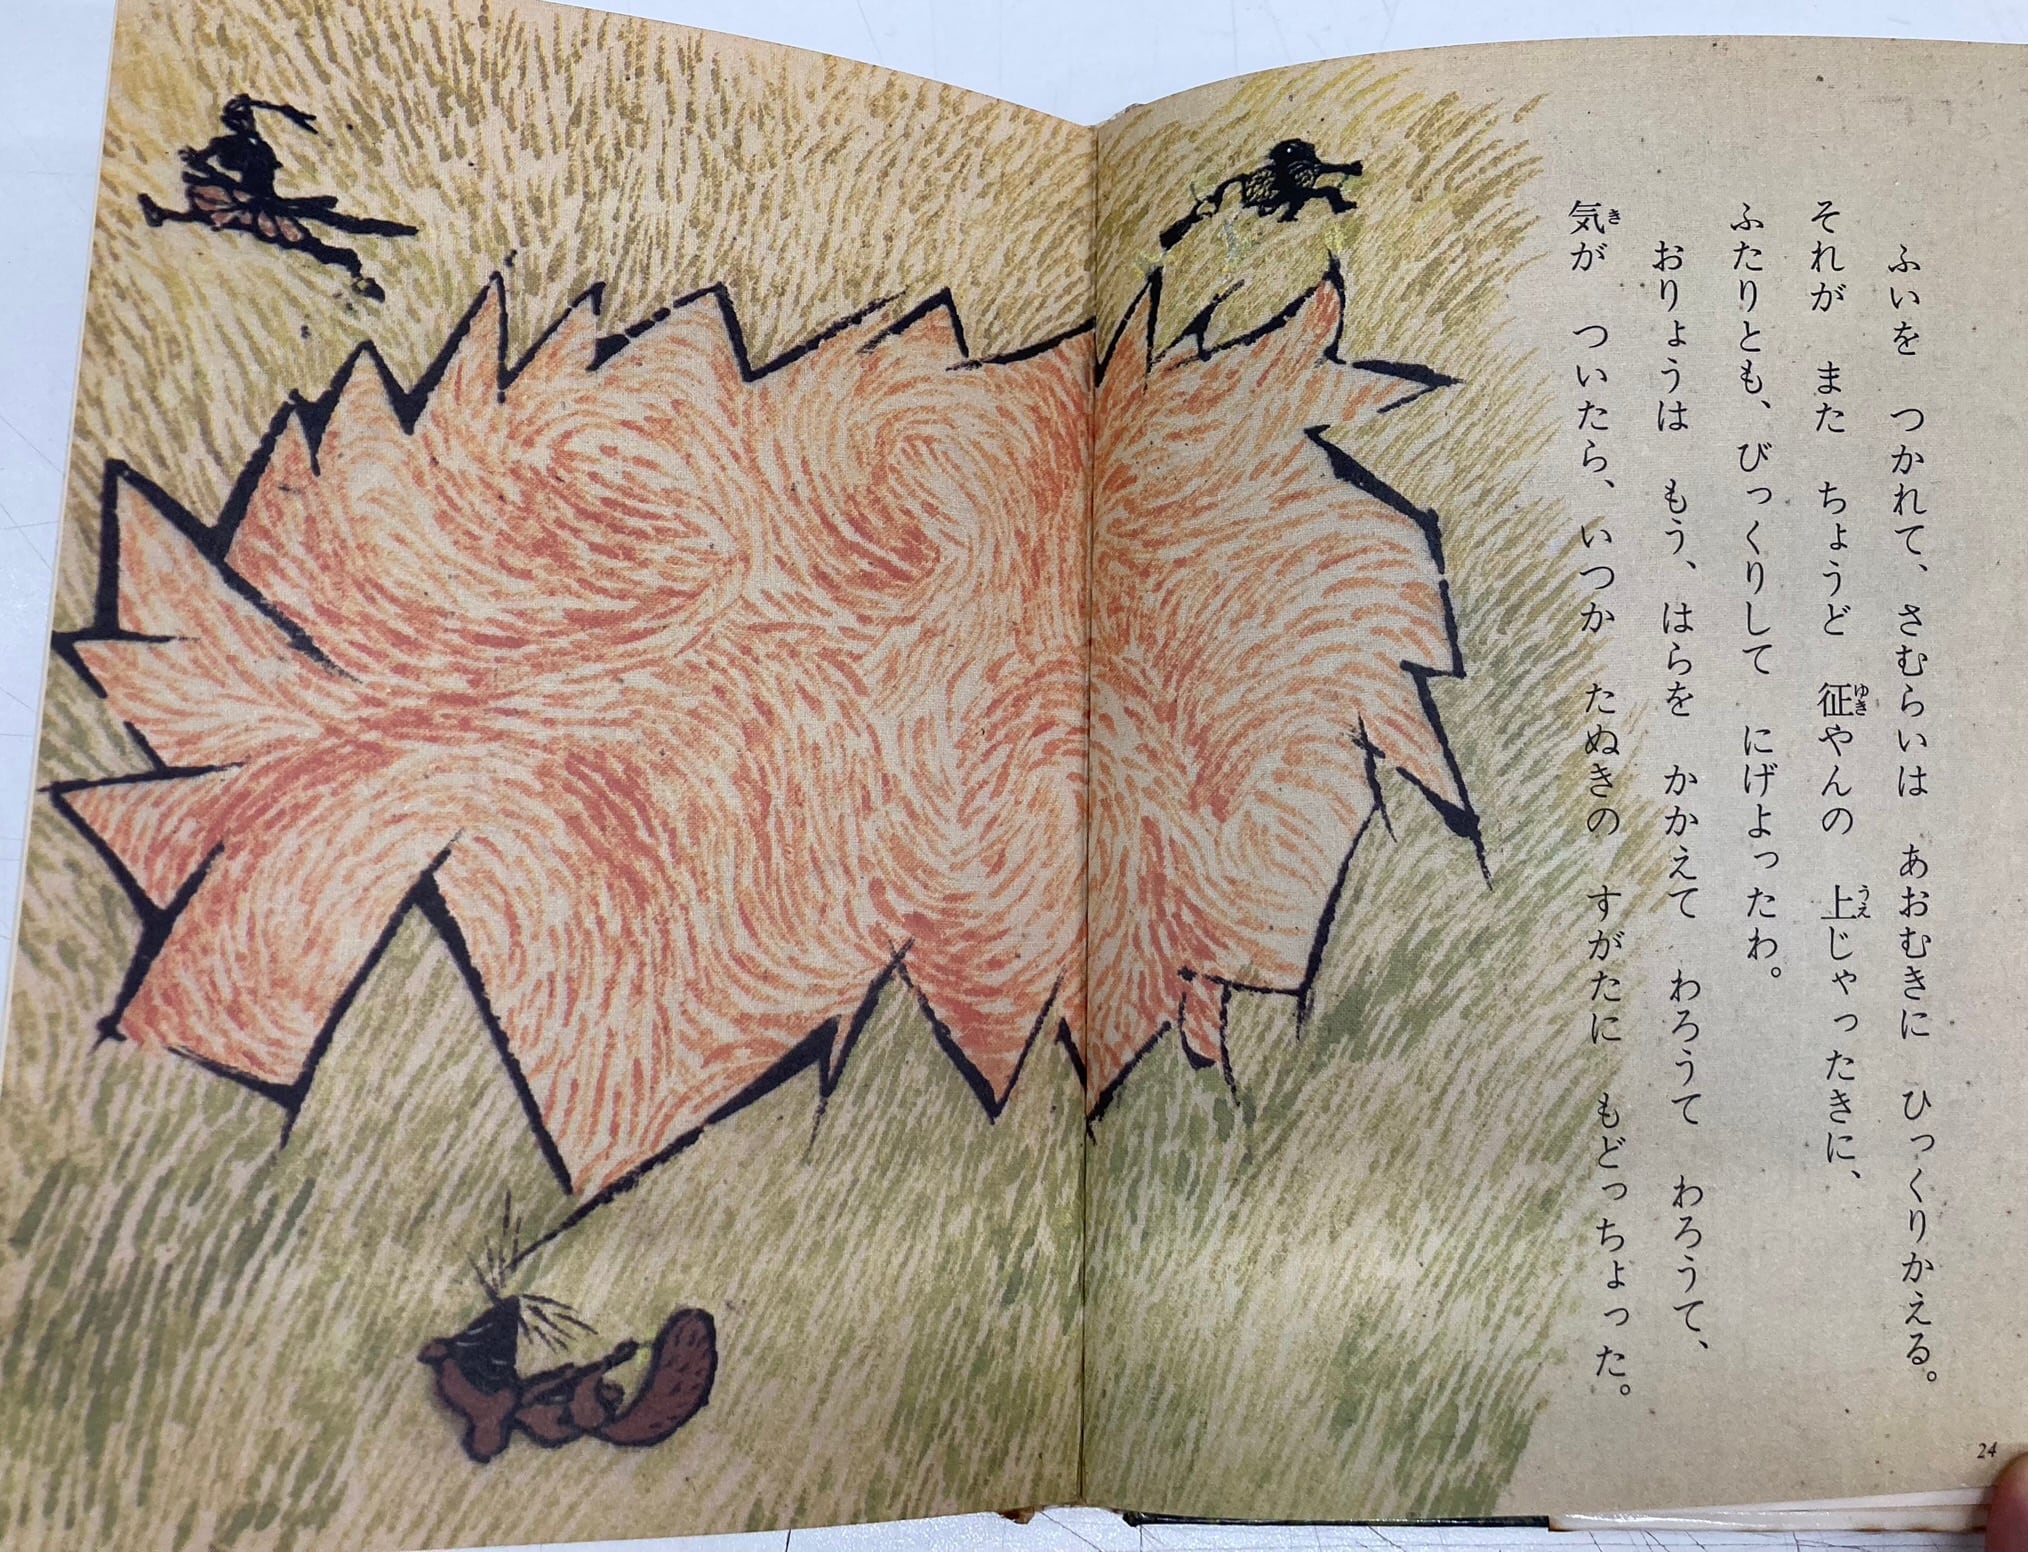 ふいを つかれて、さむらいは あおむきに ひっくりかえる。
それが また ちょうど 征やんの 上じゃったきに、
ふたりとも、びっくりして にげよったわ。
おりょうは もう、はらを かかえて わろうて わろうて、
気が ついたら、いつか たぬきの すがたに もどっちょった。
24